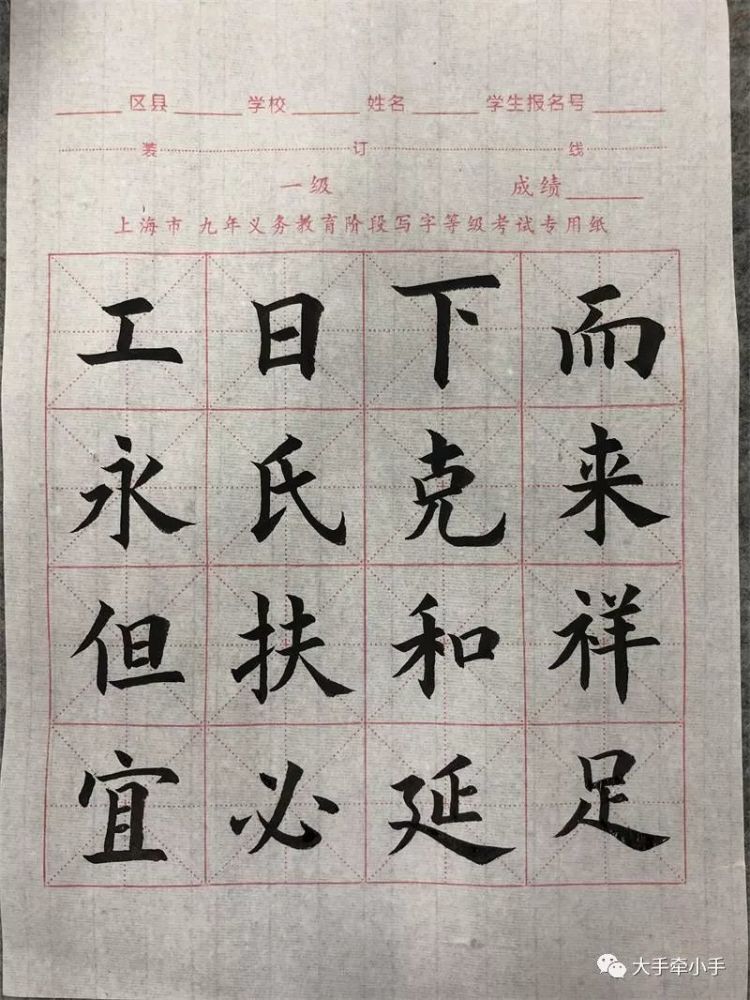 区县 学校 姓名 学生报名号
装 订 线
一级 成绩
上海市 九年义务教育阶段写字等级考试专用纸
工日下而
永氏克来
但扶和祥
宜必延足
大手牵小手